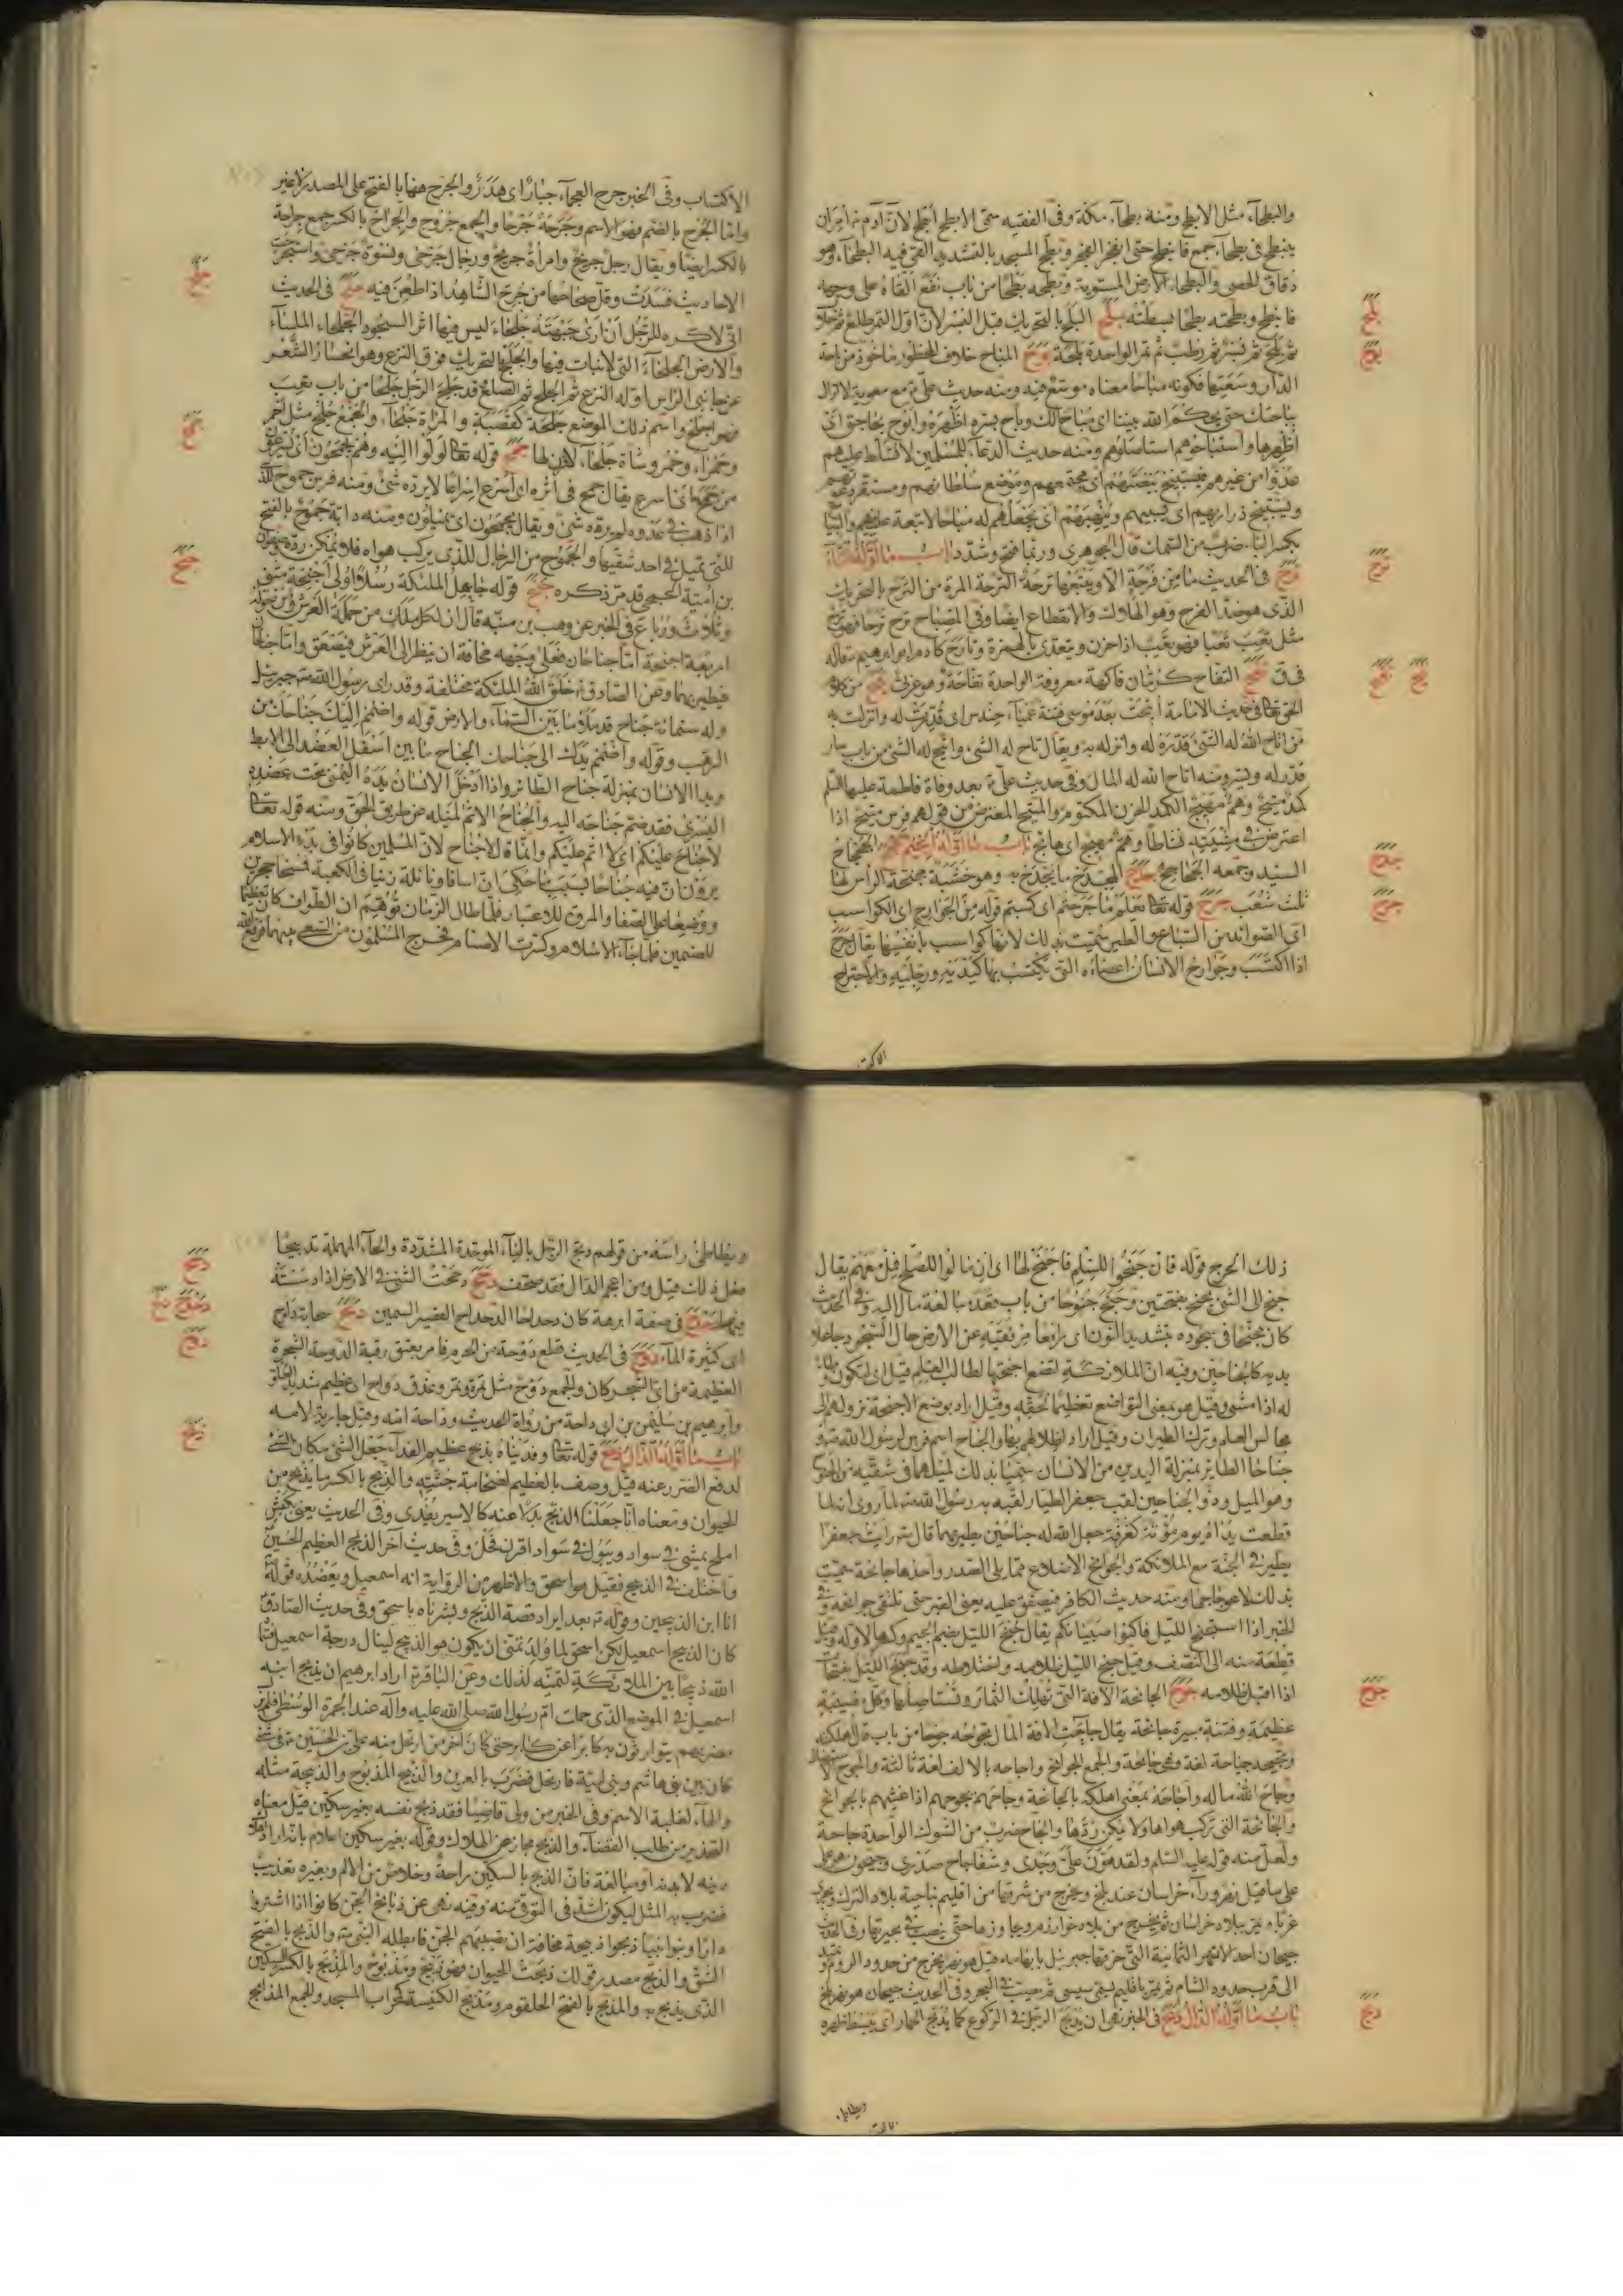 والبطحآء مثل الابطح ومنه بطحآء مكة وفى الفقيه سمى الابطح ابطح لان آدم ع امر ان
ينبطح فى بطحآء جمع فانبطح حتى انفجر الفجر وبطح المسجد بالتشديد القى فيه البطحآء وهو
دقاق الحصى والبطحاء الارض المستوية وبطحه بطحا من باب نفع القاه على وجهه
فانبطح وبطحته بطحا بسطته بلح البلح بالتحريك قبل البسر لان اول التمر طلع ثم خلال
ثم بلح ثم بسر ثم رطب ثم تمر الواحدة بلحة بوح المباح خلاف المحظور ماخوذ من باحة
الدار وسعتها فكونه مباحا معناه موسع فيه ومنه حديث على ع مع معوية لا تزال
بباحتك حتى يحكم الله بيننا اى مباحا لك وباح بسره اظهره وابوح بحاجتى اى
اظهرها واستباحوهم استاصلوهم ومنه حديث الدعآء للمسلمين لا تسلط عليهم
عدوا من غيرهم فيستبيح بيضتهم اى مجتمعهم وموضع سلطانهم ومستقر دعوتهم
ويستبيح ذراريهم اى يسبيهم وينهبهم اى يجعلهم له مباحا لا تبعة عليه فيهم والبياح
بكسر الباء ضرب من السمك قال الجوهرى وربما فتح وشدد باب ما اوله التاء
ترح فى الحديث ما من فرحة الا ويتبعها ترحة الترحة المرة من الترح بالتحريك
الذى هو ضد الفرح وهو الهلاك والانقطاع ايضا وفى المصباح ترح ترحا فهو ترح
مثل تعب تعبا فهو تعب اذا حزن ويتعدى بالهمزة وتارح كآدم ابو ابرهيم ع قاله
فى ق تفح التفاح كرمان فاكهة معروفة الواحدة تفاحة وهو عربى تيح من كلام
الحق تعالى فى حديث الامامة اتيحت بعده موسى فتنة عميآء حندس اى قدرت له وانزلت به
من اتاح الله له الشئ قدره له وانزله به ويقال تاح له الشئ واتيح له الشئ من باب سار
قدر له ويسر ومنه اتاح الله له المال وفى حديث على ع بعد وفاة فاطمة عليها السلم
كمد متيح وهم مهيج الكمد الحزن المكتوم والمتيح المعترض من قولهم فرس متيح اذا
اعترض فى مشيته نشاطا وهم مهيج اى هائج باب ما اوله الجيم جحجح الجحجاح
السيد وجمعه الجحاجح جدح المجدح ما يجدح به وهو خشبة مجنحة الراس لها
ثلث شعب جرح قوله تعالى يعلم ما جرحتم اى كسبتم قوله من الجوارح اى الكواسب
اى الصوائد من السباع والطير سميت بذلك لانها كواسب بانفسها يقال جرح
اذا اكتسب وجوارح الانسان اعضاؤه التى يكتسب بها كيديه ورجليه والاجتراح
بلح
بوح
ترح
تفح تيح
جدح
جرح
الاكتساب وفى الخبر جرح العجمآء جبار اى هدر والجرح ههنا بالفتح على المصدر لا غير
واما الجرح بالضم فهو الاسم وجرحه جرحا والجمع جروح والجراح بالكسر جمع جراحة
بالكسر ايضا ويقال رجل جريح وامرأة جريح ورجال جرحى ونسوة جرحى واستجرحت
الاحاديث فسدت وقل صحاحها من جرح الشاهد اذا طعن فيه جلح فى الحديث
انى لاكره للرجل ان ارى جبهته جلحاء ليس فيها اثر السجود الجلحاء الملسآء
والارض الجلحاء التى لا نبات فيها والجلح بالتحريك فوق النزع وهو انحسار الشعر
عن جانبى الراس اوله النزع ثم الجلح ثم الصلع وقد جلح الرجل جلحا من باب تعب
فهو اجلح واسم ذلك الموضع جلحة كقصبة والمرأة جلحآء والجمع جلح مثل احمر
وحمراء وحمر وشاة جلحآء لا قرن لها جمح قوله تعالى لولوا اليه وهم يجمحون اى يسرعون
من جمح اى اسرع يقال جمح فى اثره اى اسرع اسراعا لا يرده شئ ومنه فرس جموح للذى
اذا ذهب فى عدوه لم يرده شئ ويقال يجمحون اى يميلون ومنه دابة جموح بالفتح
للتى تميل فى احد شقيها والجموح من الرجال للذى يركب هواه فلا يمكن رده وصفوان
بن امية الجمحى قد مر ذكره جنح قوله جاعل الملئكة رسلا اولى اجنحة مثنى
وثلاث ورباع فى الخبر عن وهب بن منبه قال ان لكل ملك من حملة العرش ومن حوله
اربعة اجنحة اما جناحان فعلى وجهه مخافة ان ينظر الى العرش فيصعق واما جناحان
فيطير بهما وعن الصادق ع خلق الله الملئكة مختلفة وقد راى رسول الله ص جبرئيل
وله ستمائة جناح قد ملأ ما بين السمآء والارض قوله واضمم اليك جناحك من
الرهب وقوله واضمم يدك الى جناحك الجناح ما بين اسفل العضد الى الابط
ويدا الانسان بمنزلة جناح الطائر واذا ادخل الانسان يده اليمنى تحت عضده
اليسرى فقد ضم جناحه اليه والجناح الاثم لميله عن طريق الحق ومنه قوله تعالى
لا جناح عليكم اى لا اثم عليكم وانما قال لا جناح لان المسلمين كانوا فى بدء الاسلام
يرون ان فيه جناحا بسبب ما حكى ان اسافا ونائلة زنيا فى الكعبة فمسخا حجرين
ووضعا على الصفا والمروة للاعتبار فلما طال الزمان توهم ان الطواف كان تعظيما
للصنمين فلما جاء الاسلام وكسرت الاصنام فتحرج المسلمون من السعى بينهما فرفع الله
جلح
جمح
جنح
الاكت
ذلك الحرج قوله فان جنحوا للسلم فاجنح لها اى ان مالوا للصلح فمل معهم يقال
جنح الى الشئ يجنح بفتحتين وجنح جنوحا من باب قعد مبالغة مال اليه وفى الحديث
كان يجنح فى سجوده بتشديد النون اى رافعا مرفقيه عن الارض حال السجود جاعلا
يديه كالجناحين وفيه ان الملائكة لتضع اجنحتها لطالب العلم قيل اى لتكون وطاء
له اذا مشى وقيل هو بمعنى التواضع تعظيما لحقه وقيل اراد بوضع الاجنحة نزولهم الى
مجالس العلم وترك الطيران وقيل اراد اظلالهم بها والجناح اسم فرس لرسول الله ص و
جناحا الطائر بمنزلة اليدين من الانسان سميا بذلك لميلهما فى شقيه من الجنوح
وهو الميل وذو الجناحين لقب جعفر الطيار لقبه به رسول الله ص لما روى انه لما
قطعت يداه يوم مؤتة كغرفة جعل الله له جناحين يطير بهما قال ص رايت جعفرا
يطير فى الجنة مع الملائكة والجوانح الاضلاع مما يلى الصدر واحدها جانحة سميت
بذلك لاعوجاجها ومنه حديث الكافر فيضيق عليه يعنى القبر حتى تلتقى جوانحه وفى
الخبر اذا استجنح الليل فاكفوا صبيانكم يقال جنح الليل بضم الجيم وكسرها لاوله وقيل
قطعة منه الى النصف وقيل جنح الليل ظلامه واختلاطه وقد جنح الليل بفتحتين
اذا اقبل ظلامه جوح الجائحة الآفة التى تهلك الثمار وتستاصلها وكل مصيبة
عظيمة وفتنة مبيرة جائحة يقال جاحت الآفة المال تجوحه جوحا من باب قال اهلكته
وتجيحه جياحة لغة وهى جائحة والجمع الجوائح واجاحه بالالف لغة ثالثة والجوح الاستيصال
وجاح الله ماله واجاحه بمعنى اهلكه بالجائحة وجاحهم يجوحهم اذا غشيهم بالجوائح
والجائحة التى تركب هواها ولا يمكن ردها والجاح ضرب من الشوك الواحدة جاحة
ولعل منه قوله عليه السلم ولقد هون على وجدى وشفا جاح صدرى وجيحون هو على
على ما قيل نهر ورآء خراسان عند بلخ ويخرج من شرقها من اقليم ناحية بلاد الترك ويجرى
غربا ويمر ببلاد خراسان ثم يخرج من بلاد خوارزم ويجاوزها حتى ينصب فى بحيرتها وفى الحديث
جيحان احد الانهر الثمانية التى خرقها جبرئيل بابهامه قيل هو نهر يخرج من حدود الروم ويمتد
الى قرب حدود الشام ثم يمر باقليم يسمى سيسى ثم يصب فى البحر وفى الحديث جيحان هو نهر بلخ
باب ما اوله الدال دبح فى الخبر نهى ان يدبح الرجل فى الركوع كما يدبح الحمار اى يبسط ظهره
جوح
دبح
ويطاطئ راسه من قولهم دبح الرجل بالبآء الموحدة المشددة والحآء المهملة تدبيحا
فعل ذلك قيل ومن اعجم الدال فقد صحف دحح دححت الشئ فى الارض اذا دسسته
فيها دحدح فى صفة ابرهة كان دحداحا الدحداح القصير السمين دلح سحابة دلوح
اى كثيرة المآء دوح فى الحديث قطع دوحة من الحرم فامر بعتق رقبة الدوحة الشجرة
العظيمة من اى الشجر كان والجمع دوح مثل تمرة وتمر وعذق دواح اى عظيم شديد العلو
وابرهيم بن سليمن بن ابى داحة من رواة الحديث وداحة امه وقيل جارية لامه
باب ما اوله الذال ذبح قوله تعالى وفديناه بذبح عظيم الفدآء جعل الشئ مكان الشئ
لدفع الضرر عنه قيل وصف بالعظيم لضخامة جثته والذبح بالكسر ما يذبح من
الحيوان ومعناه انا جعلنا الذبح بدلا عنه كالاسير يفدى وفى الحديث يعنى بكبش
املح يمشى فى سواد ويبول فى سواد اقرن فحل وفى حديث آخر الذبح العظيم الحسين
واختلف فى الذبيح فقيل هو اسحق والاظهر من الرواية انه اسمعيل ويعضده قوله ص
انا ابن الذبيحين وقوله تع بعد ايراد قصة الذبح وبشرناه باسحق وفى حديث الصادق ع
كان الذبيح اسمعيل لكن اسحق لما ولد تمنى ان يكون هو الذبيح لينال درجة اسمعيل فسماه
الله ذبيحا بين الملائكة لتمنيه لذلك وعن الباقر ع اراد ابرهيم ان يذبح ابنه
اسمعيل فى الموضع الذى حملت ام رسول الله صلى الله عليه وآله عند الجمرة الوسطى فلم يزل
مضربهم يتوارثون به كابرا عن كابر حتى كان آخر من ارتحل منه على بن الحسين ع فى شئ
كان بين بنى هاشم وبنى امية فارتحل فضرب بالعرين والذبيح المذبوح والذبيحة مثله
والهآء لغلبة الاسم وفى الخبر من ولى قاضيا فقد ذبح نفسه بغير سكين قيل معناه
التحذير من طلب القضآء والذبح مجاز عن الهلاك وقوله بغير سكين اعلام بانه اراد هلاك
دينه لا بدنه او مبالغة فان الذبح بالسكين راحة وخلاص من الالم وبغيره تعذيب
فضرب به المثل ليكون اشد فى التوقى منه وفيه نهى عن ذبائح الجن كانوا اذا اشتروا
دارا او بنوا بنيانا ذبحوا ذبيحة مخافة ان تصيبهم الجن فابطله النبى ص والذبح بالفتح
الشق والذبح مصدر قولك ذبحت الحيوان فهو ذبيح ومذبوح والمذبح بالكسر السكين
الذى يذبح به والمذبح بالفتح الحلقوم ومذبح الكنيسة كمحراب المسجد والجمع المذابح
دحح
دحدح دلح
دوح
ذبح
ويطاطئ